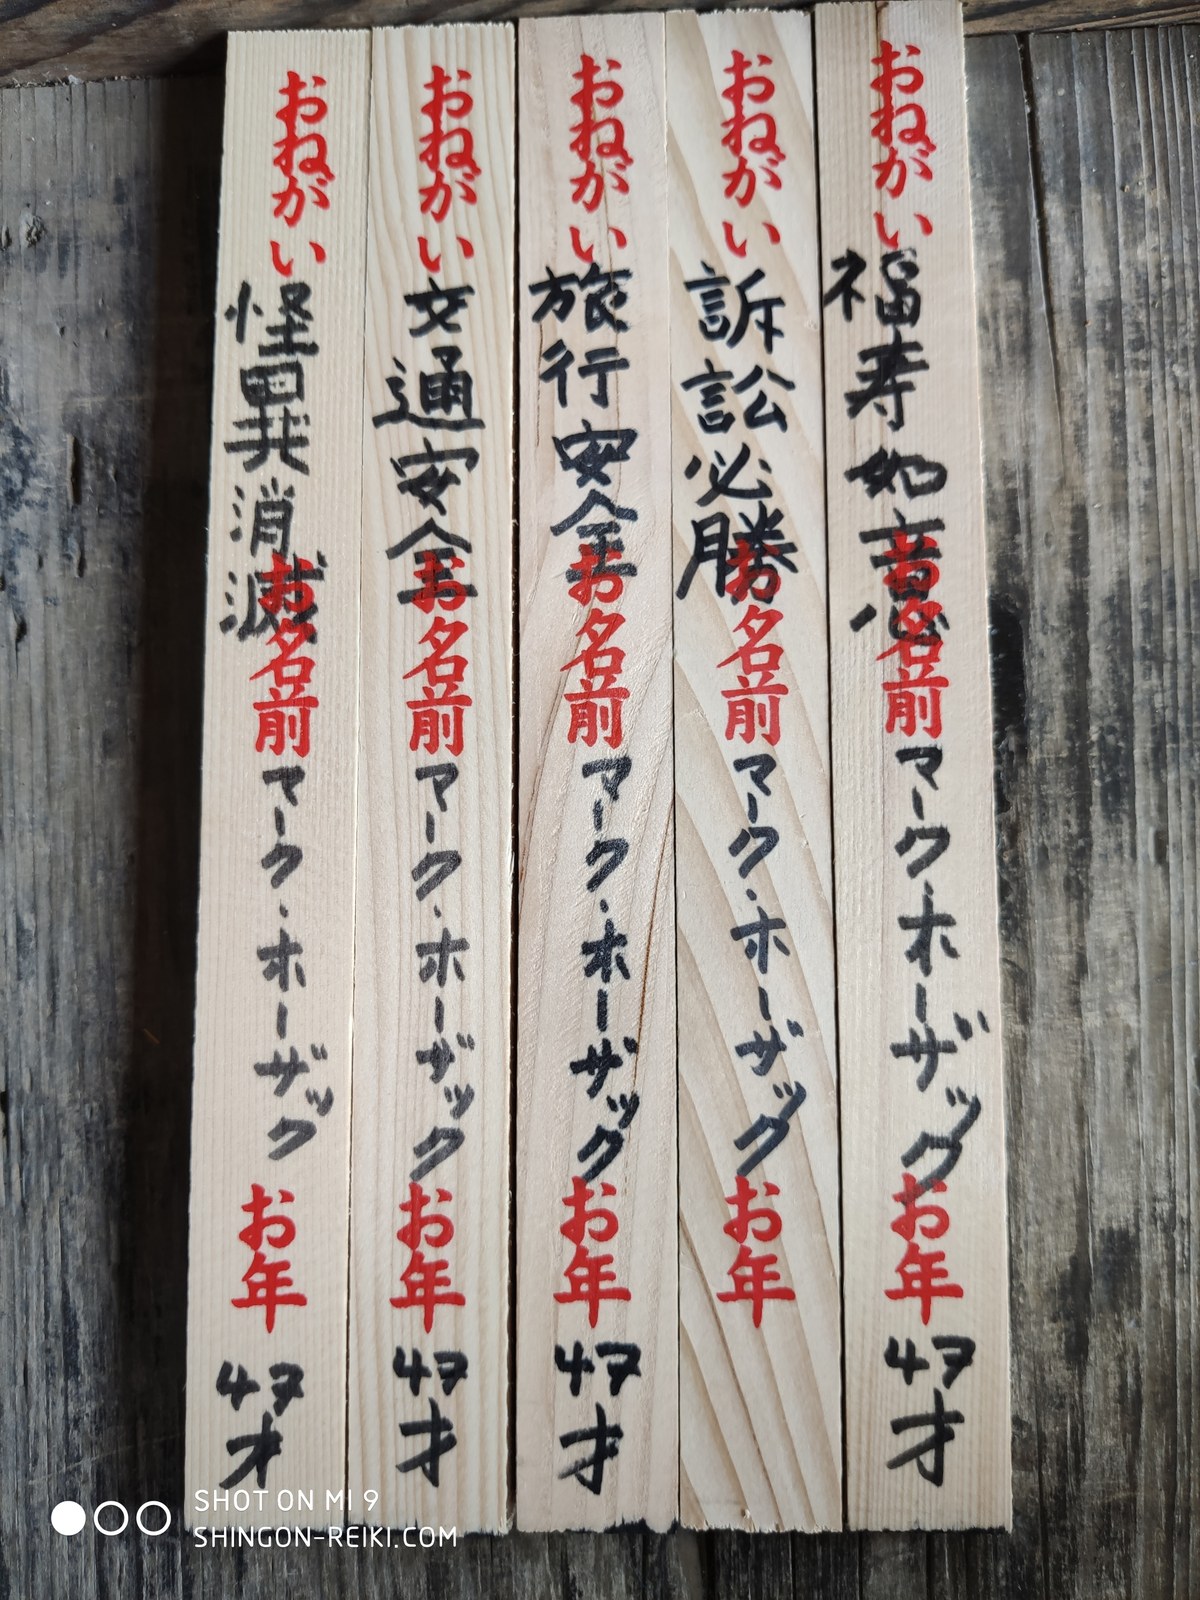 おねがい 福寿如意 お名前 マーク・ホーザック お年 47才
おねがい 訴訟必勝 お名前 マーク・ホーザック お年
おねがい 旅行安全 お名前 マーク・ホーザック お年 47才
おねがい 交通安全 お名前 マーク・ホーザック お年 47才
おねがい 怪異消滅 お名前 マーク・ホーザック お年 47才
SHOT ON MI 9
SHINGON-REIKI.COM